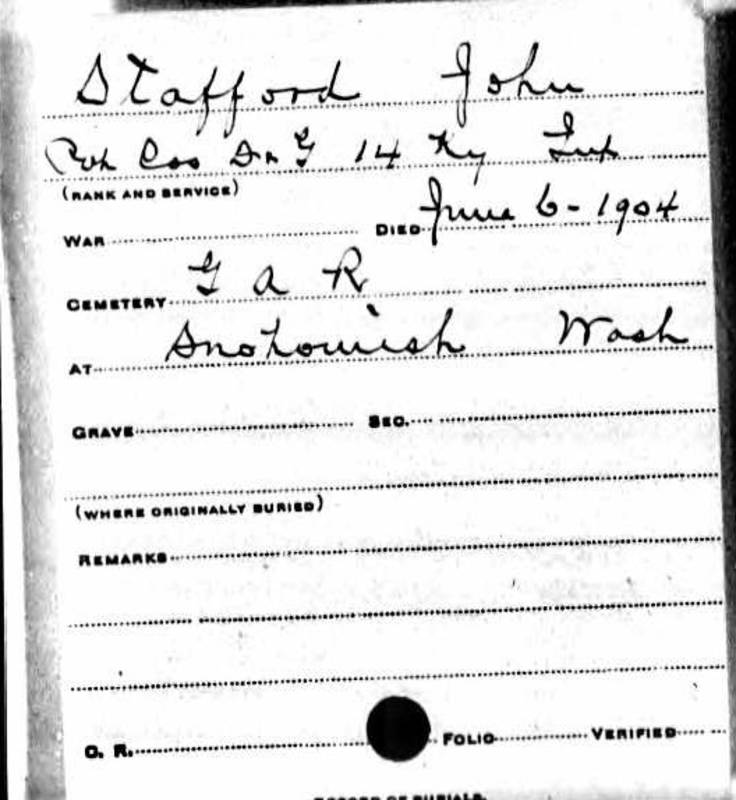 Stafford John
Pvt Cos D & G 14 Ky Inf
(RANK AND SERVICE)
WAR DIED June 6-1904
CEMETERY G A R
AT Snohomish Wash
GRAVE SEC.
(WHERE ORIGINALLY BURIED)
REMARKS
O. R. FOLIO VERIFIED
RECORD OF BURIALS.